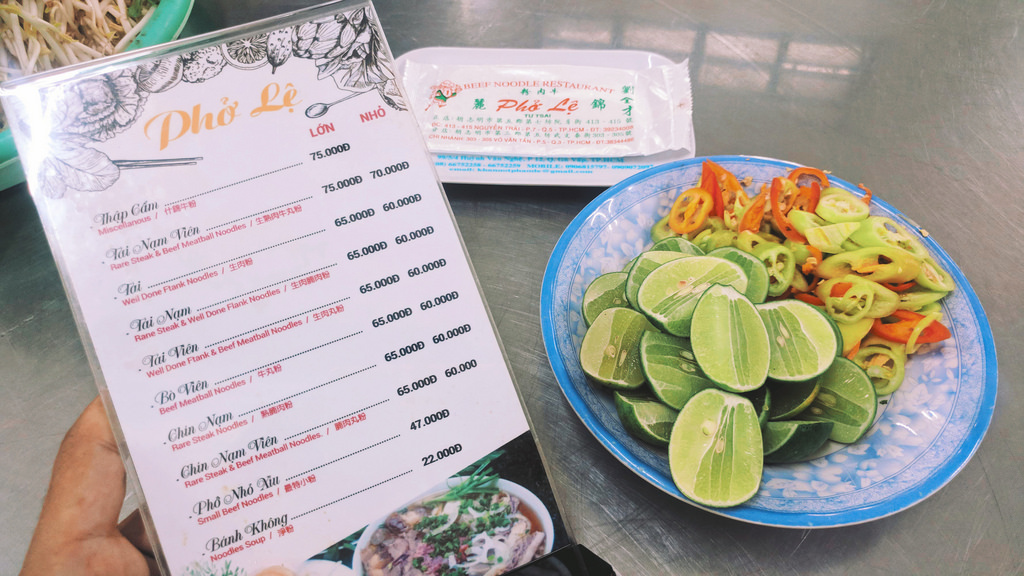 Phở Lệ
LỚN NHỎ
Thập Cẩm 75.000Đ
Miscellanous / 什錦牛粉
Tái Nạm Viên 75.000Đ 70.000Đ
Rare Steak & Beef Meatball Noodles / 生熟肉牛丸粉
Tái 65.000Đ 60.000Đ
Well Done Flank Noodles / 生肉粉
Tái Nạm 65.000Đ 60.000Đ
Rane Steak & Well Done Flank Noodles / 生肉腩肉粉
Tái Viên 65.000Đ 60.000Đ
Well Done Flank & Beef Meatball Noodles / 生肉丸粉
Bò Viên 65.000Đ 60.000Đ
Beef Meatball Noodles / 牛丸粉
Chín Nạm 65.000Đ 60.000Đ
Rare Steak Noodles / 熟腩肉粉
Chín Nạm Viên 65.000Đ 60.000
Rare Steak & Beef Meatball Noodles / 腩肉丸粉
Phở Nhỏ Xíu 47.000Đ
Small Beef Noodles / 最特小粉
Bánh Không 22.000Đ
Noodles Soup / 淨粉
BEEF NOODLE RESTAURANT
粉肉牛
麗 Phở Lệ 錦
TU YSAI
劉金才
ĐC: 413 - 415 NGUYỄN TRÃI - P.7 - Q.5 - TP.HCM - ĐT: 39234008
303 - 305 VÕ VĂN TẦN - P.5 - Q.3 - TP.HCM